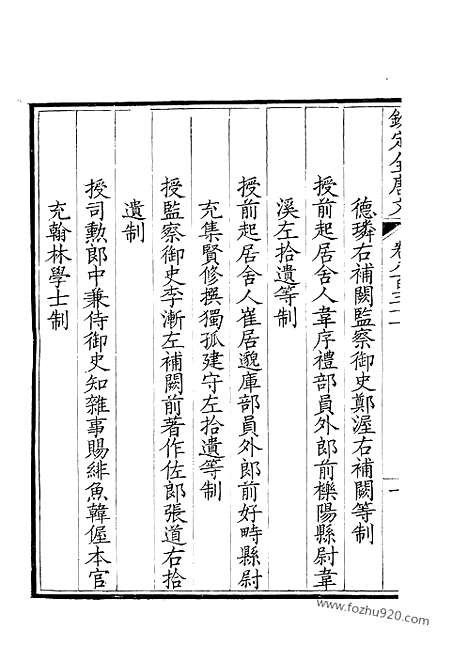 欽定全唐文 卷八百三十一 一
德璘右補闕監察御史鄭渥右補闕等制
授前起居舍人韋序禮部員外郎前櫟陽縣尉韋
溪左拾遺等制
授前起居舍人崔居邈庫部員外郎前好畤縣尉
充集賢修撰獨孤建守左拾遺等制
授監察御史李漸左補闕前著作佐郎張道右拾
遺制
授司勳郎中兼侍御史知雜事賜緋魚韓偓本官
充翰林學士制
www.fozhu920.com